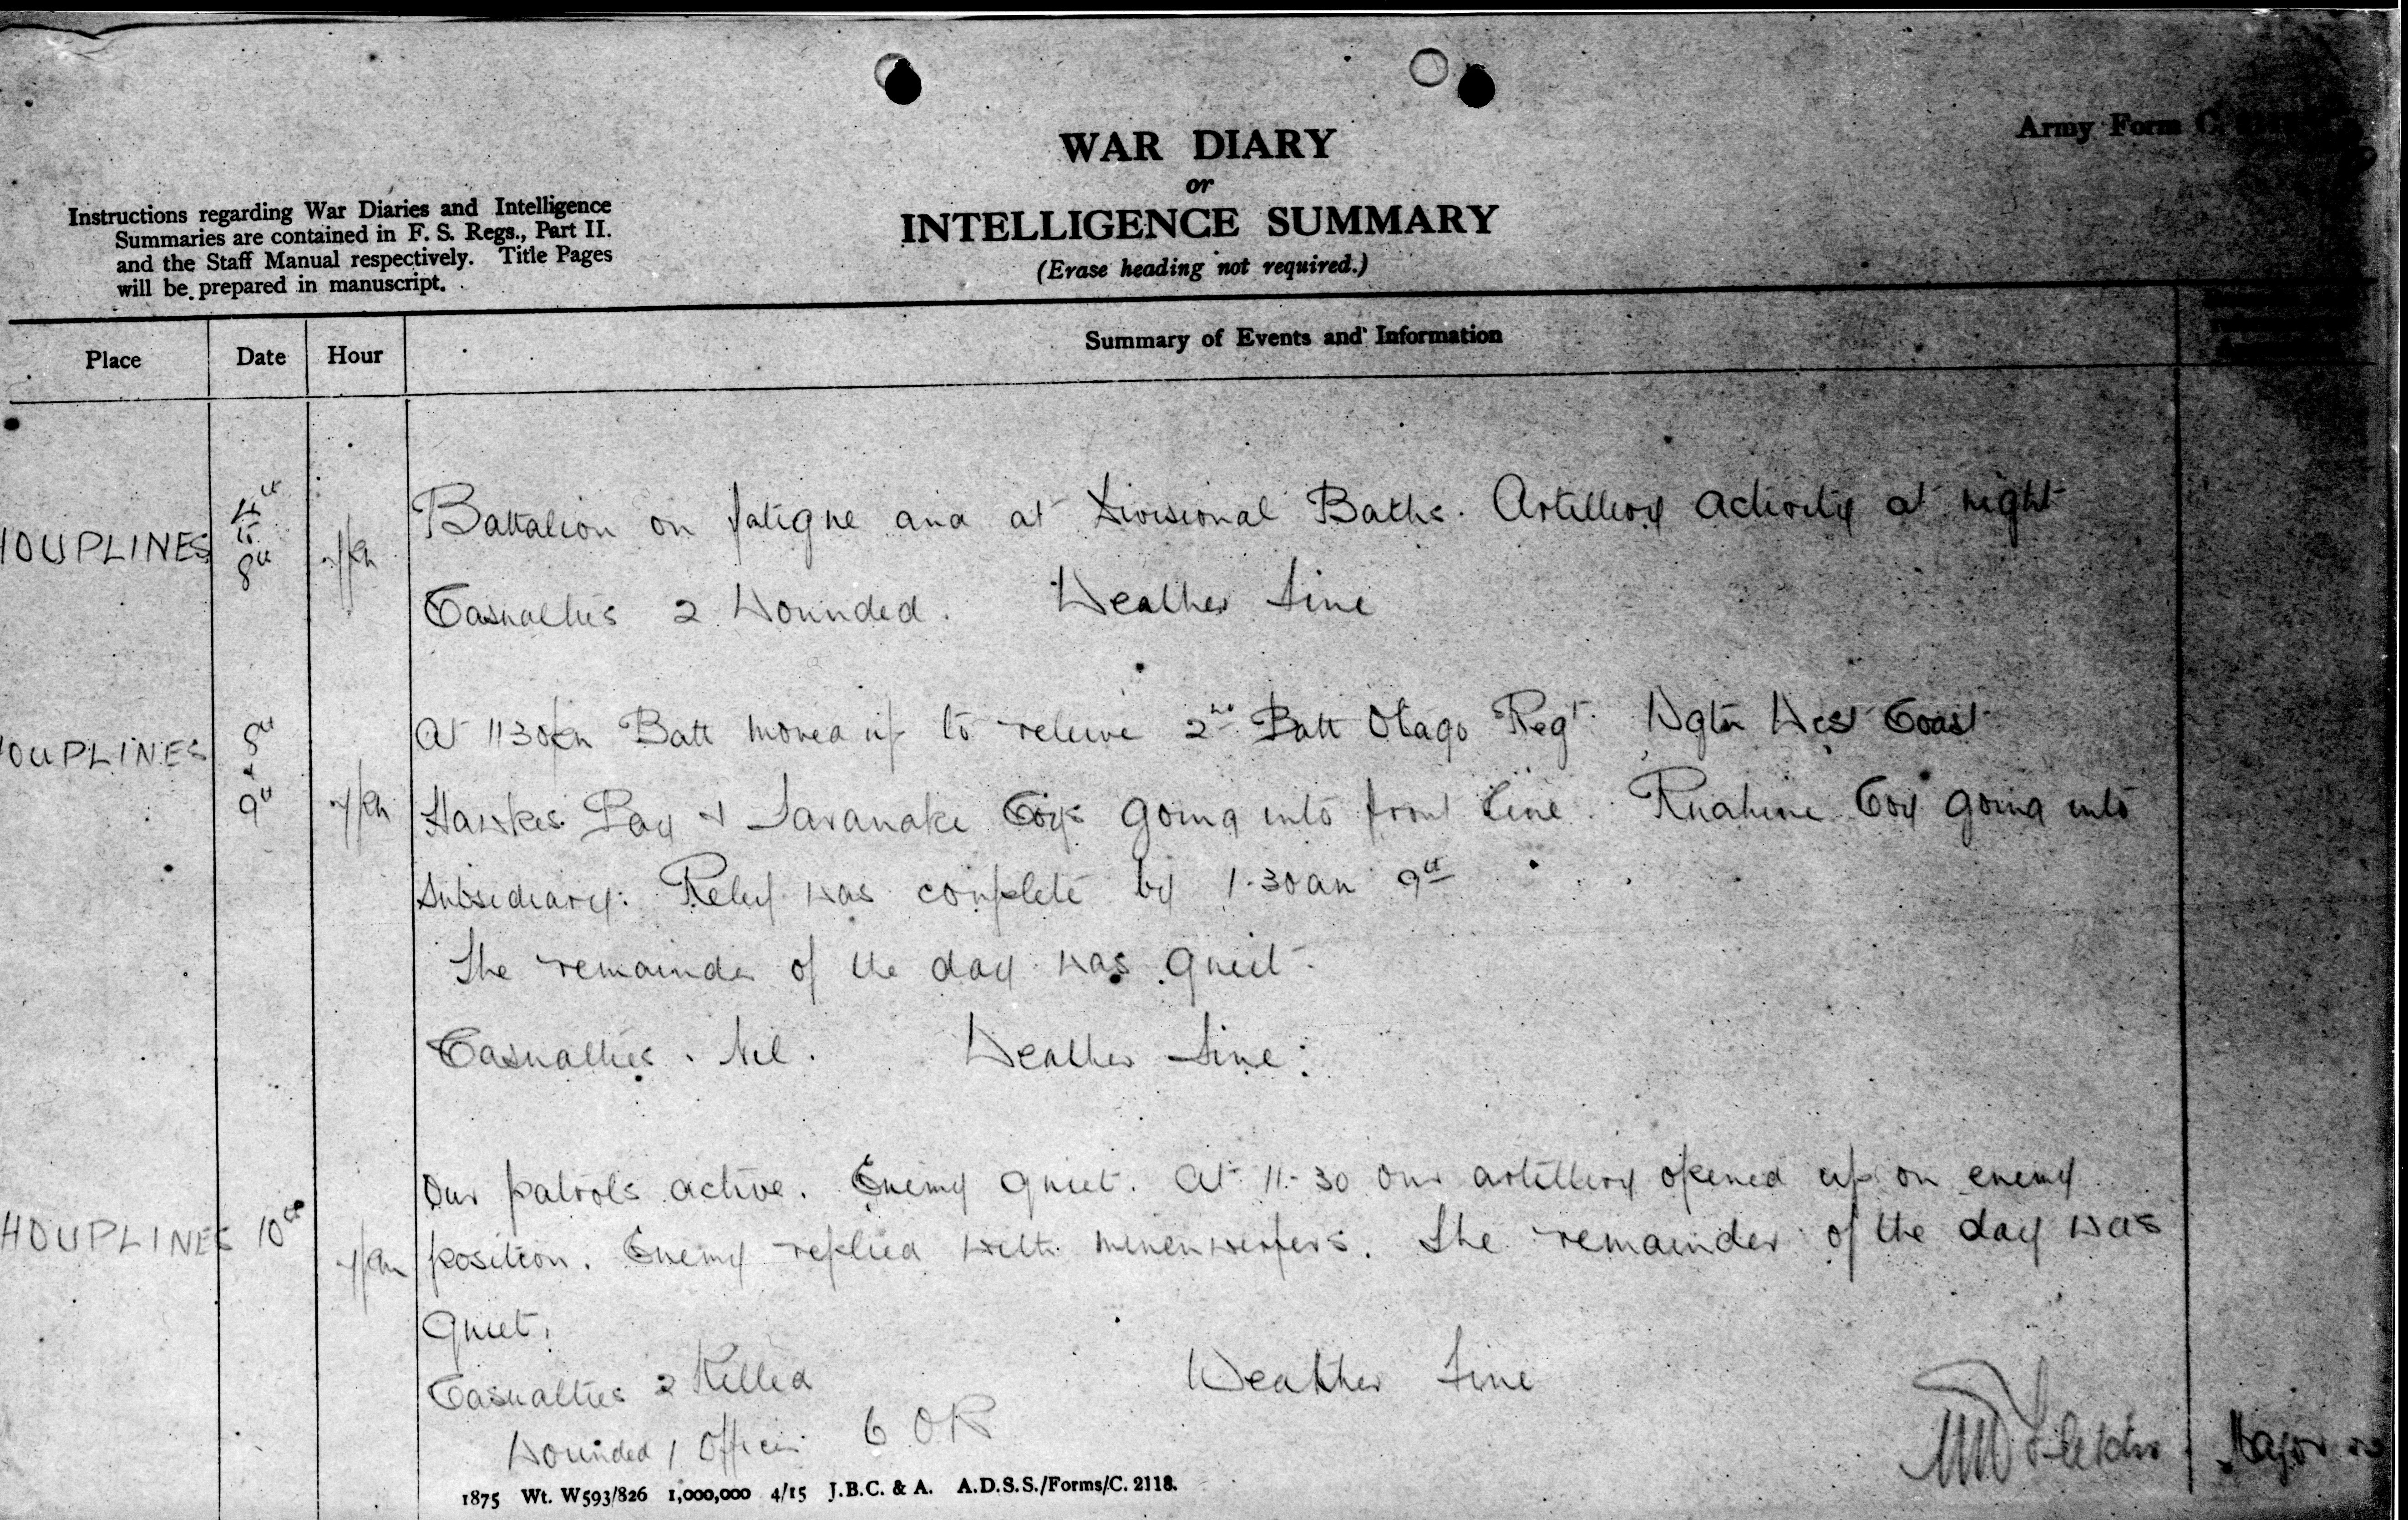 Army Form C.
WAR DIARY
or
INTELLIGENCE SUMMARY
(Erase heading not required.)
Instructions regarding War Diaries and Intelligence
Summaries are contained in F. S. Regs., Part II.
and the Staff Manual respectively. Title Pages
will be prepared in manuscript.
Place Date Hour Summary of Events and Information
HOUPLINES 8th Battalion on fatigue and at Divisional Baths. Artillery activity at night
Casualties 2 Wounded. Weather Fine
OUPLINES 8th 9th At 1130pm Batt moved up to relieve 2nd Batt Otago Regt. Wgtn West Coast
Hawkes Bay & Taranake Coys going into front line. Ruahine Coy going into
Subsidiary: Relief was complete by 1.30am 9th
The remainder of the day was quiet.
Casualties. Nil. Weather Fine:
HOUPLINES 10th Our patrols active. Enemy quiet. At 11-30 our artillery opened up on enemy
position. Enemy replied with minenwerfers. The remainder of the day was
quiet.
Casualties 2 Killed Weather Fine
Wounded 1 Officer 6 OR
Major
1875 Wt. W593/826 1,000,000 4/15 J.B.C. & A. A.D.S.S./Forms/C. 2118.